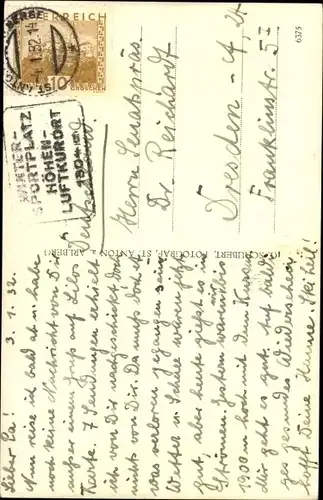 3.1.32.
Lieber Pa!
Nun reise ich bald ab u. habe
noch keine Nachricht von Dir
außer einen Gruß auf Lilos
Karte. 7 Sendungen erhielt
ich von Dir nachgeschickt doch
nichts von Dir. Da muß doch et-
was verloren gegangen sein.
Wetter u. Schnee waren jetzt
gut, aber heute gießt es in
Strömen. Gestern waren wir
1900 m hoch mit dem Kurs.
Mir geht es gut, auf bald-
ges gesundes Wiedersehen
hofft Deine Hanne. Ski heil!
ÖSTERREICH
10 GROSCHEN
ST. ANTON
4.I.32.14
WINTER-
SPORTPLATZ
HÖHEN-
LUFTKURORT
1304 m
Herrn Senatspräs.
Dr. Reichardt
Dresden - A, 24
Franklinstr. 5 I
Deutschland
SCHUBERT, FOTOGRAF, ST. ANTON a. ARLBERG
6375